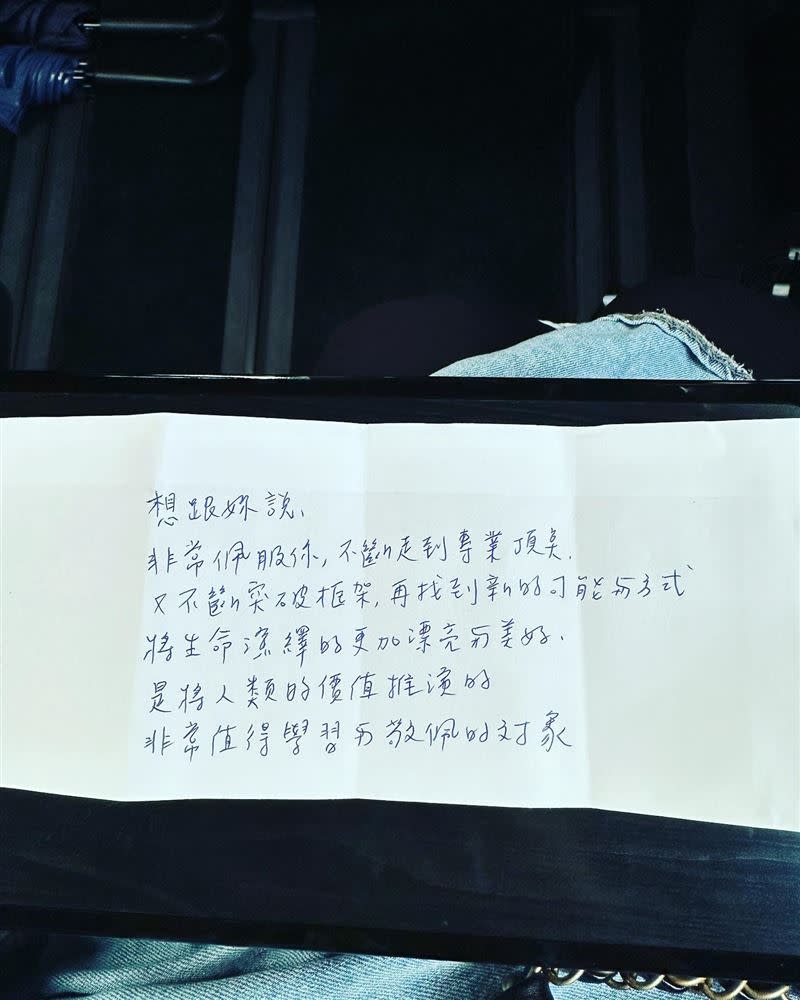 想跟妳說、
非常佩服你, 不斷走到專業頂尖.
又不斷突破框架, 再找到新的可能与方式
將生命演繹的更加漂亮与美好.
是將人類的價值推演的
非常值得學習与敬佩的对象